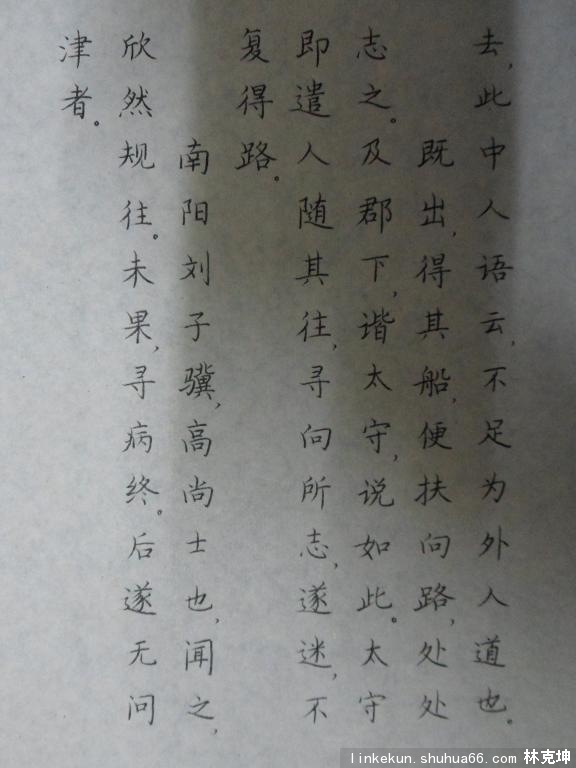 去，此中人语云，不足为外人道也。
既出，得其船，便扶向路，处处
志之。及郡下，谐太守，说如此。太守
即遣人随其往，寻向所志，遂迷，不
复得路。
南阳刘子骥，高尚士也，闻之，
欣然规往。未果，寻病终。后遂无问
津者。
linekun.shuhua66.com 林克坤